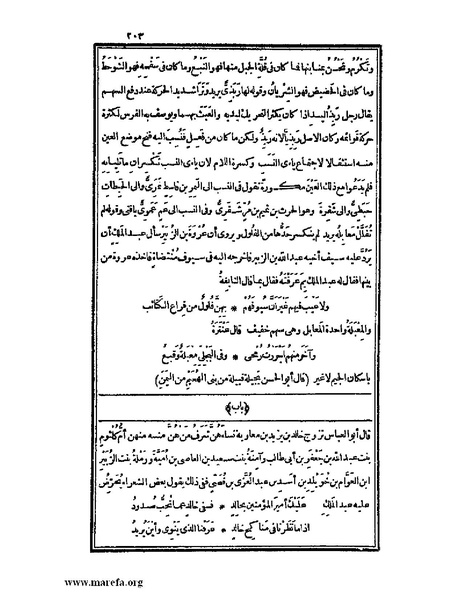 ٢٠٣
وتكرم وتحسن بمنابتها فما كان فى قلة الجبل منها فهو النبع وما كان فى سفحه فهو الشوحط
وما كان فى الحضيض فهو الشريان وقوله لها ربذى يريد وترا شديد الحركة عند دفع السهم
يقال رجل ربذ اليد اذا كان يكثر التحريك ليديه والعبث بهما ويوصف به الفرس لكثرة
حركة قوائمه وكان الاصل ربذيا لانه ربذ ولكن ما كان من فعل فنسب اليه فتح موضع العين
منه استثقالا لاجتماع ياءى النسب وكسرة اللام لان ياءى النسب تكسران ما تليانه
فلم يدعوا مع ذلك العين مكسورة تقول فى النسب الى النمر بن قاسط نمرى والى الحبطات
حبطى والى شقرة وهو الحرث بن تميم بن مر شقرى وفى النسب الى عم عموى يافتى وقوله لم
تفلل معابله يريد لم ينكسر حدها من الفلول ويروى أن عروة بن الزبير سأل عبد الملك أن
يرد عليه سيف أخيه عبد الله بن الزبير فأخرجه اليه فى سيوف منتضاة فأخذه عروة من
بينها فقال له عبد الملك بم عرفته فقال بما قال النابغة
ولا عيب فيهم غير أن سيوفهم * بهن فلول من قراع الكتائب
والمعبلة واحدة المعابل وهى سهم خفيف قال عنترة
وآخر منهم أجررت رمحى * وفى البجلى معبلة وقيع
باسكان الجيم لا غير (قال أبو الحسن بجيلة قبيلة من بنى الهجيم من اليمن)
﴿باب﴾
قال أبو العباس تزوج خالد بن يزيد بن معاوية نساء هن شرف من هن منه منهن أم كلثوم
بنت عبد الله بن جعفر بن أبى طالب وآمنة بنت سعيد بن العاصى بن أمية ورملة بنت الزبير
ابن العوام بن خويلد بن أسد بن عبد العزى بن قصى ففى ذلك يقول بعض الشعراء يحرض
عليه عبد الملك عليك أمير المؤمنين بخالد * ففى خالد عما تحب صدود
اذا ما نظرنا فى مناكح خالد * عرفنا الذى ينوى وأين يريد
www.marefa.org